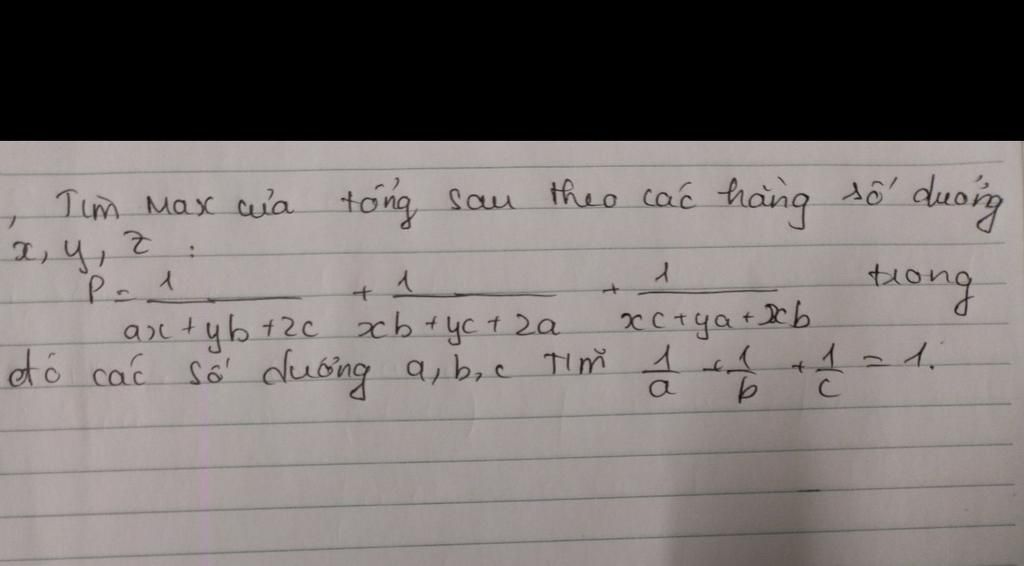 , Tìm Max của tổng sau theo các hằng số dương
x, y, z :
P = 1/(ax+yb+2c) + 1/(xb+yc+2a) + 1/(xc+ya+xb) trong
đó các số dương a, b, c Tìm 1/a + 1/b + 1/c = 1.